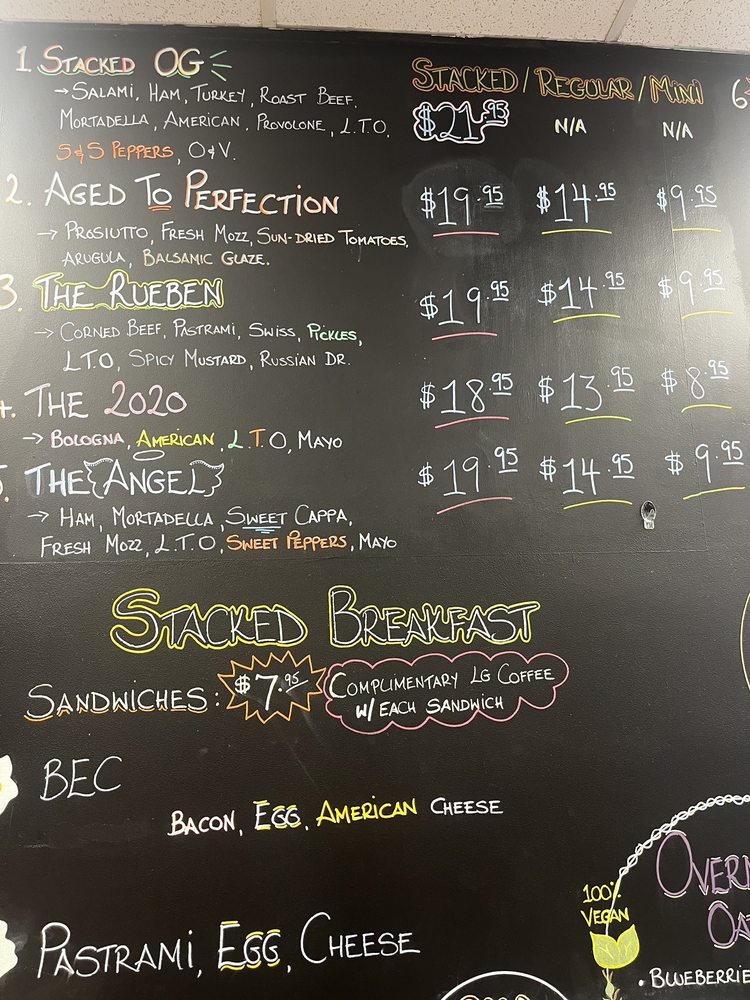 1. STACKED OG
STACKED / REGULAR / MINI
→ SALAMI, HAM, TURKEY, ROAST BEEF,
MORTADELLA, AMERICAN, PROVOLONE, L.T.O,
S&S PEPPERS, O&V.
$21.95 N/A N/A
6
2. AGED TO PERFECTION
$19.95 $14.95 $9.95
→ PROSIUTTO, FRESH MOZZ, SUN-DRIED TOMATOES,
ARUGULA, BALSAMIC GLAZE.
3. THE RUEBEN
$19.95 $14.95 $9.95
→ CORNED BEEF, PASTRAMI, SWISS, PICKLES,
L.T.O, SPICY MUSTARD, RUSSIAN DR.
4. THE 2020
$18.95 $13.95 $8.95
→ BOLOGNA, AMERICAN, L.T.O, MAYO
5. THE ANGEL
$19.95 $14.95 $9.95
→ HAM, MORTADELLA, SWEET CAPPA,
FRESH MOZZ, L.T.O, SWEET PEPPERS, MAYO
STACKED BREAKFAST
SANDWICHES: $7.95 COMPLIMENTARY LG COFFEE
W/ EACH SANDWICH
BEC
BACON, EGG, AMERICAN CHEESE
PASTRAMI, EGG, CHEESE
100%
VEGAN
OVERN
OA
• BLUEBERRIE